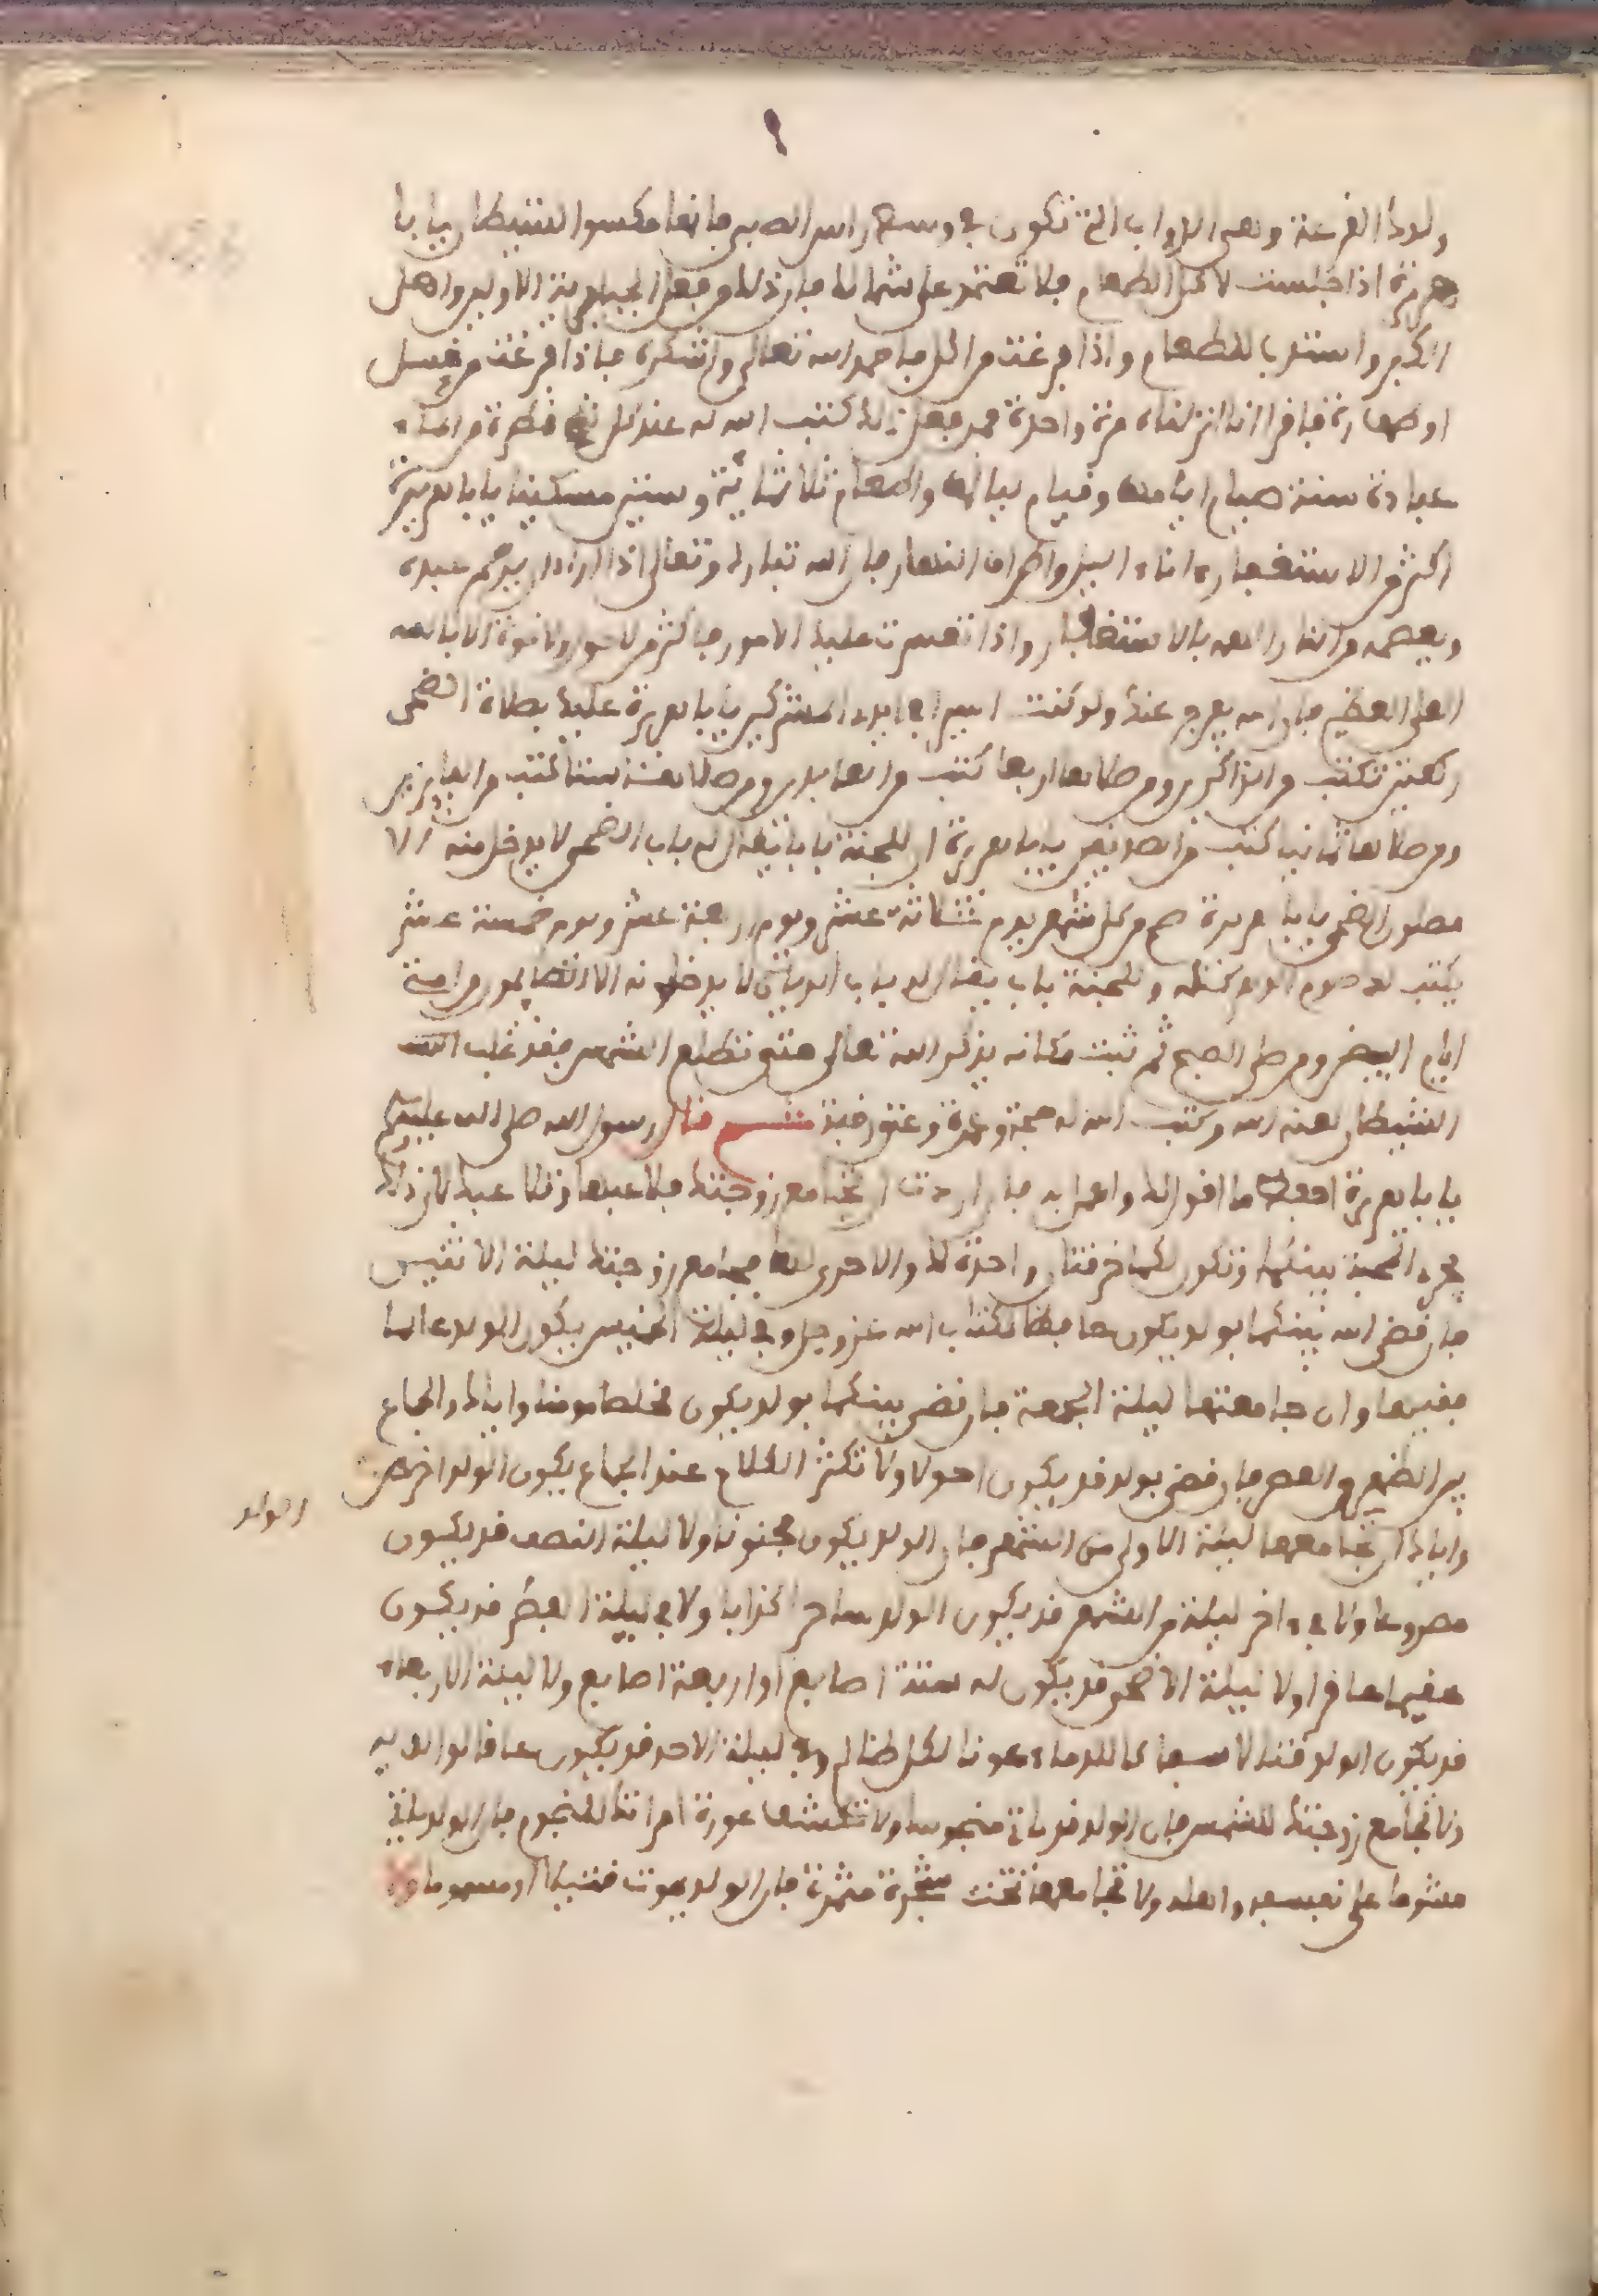 ولدك الفزعة وهي الذواب التي تكون في وسط راس الصبي فإنها مكسوا الشيطان يابا
هريرة اذا جلست لاكل الطعام فلا تعتمد على شمالك فان ذلك من فعل الجبابرة الاولين واهل
الكبر واستعن بالله والطعام واذا فرغت من اكل فاحمد الله تعالى واشكره فاذا فرغت من غسل
او طهارة فاقرا انا انزلناه مرة واحدة فمن فعل ذلك كتب الله له عند كل قطرة من الماء
عبادة سنة صيام ايامها وقيام لياليها واطعام ثلاثماية وستين مسكينا يابا هريرة
اكثر من الاستغفار اناء اليل واطراف النهار فان الله تبارك وتعالى اذا اراد ان يرحم عبده
ويعصمه من النار الهمه بالاستغفار واذا تعسرت عليك الامور فاكثر من لا حول ولا قوة الا بالله
العلي العظيم فان الله يفرج عنك ولو كنت اسيرا في ايدي المشركين يابا هريرة عليك بصلاة الضحى
ركعتين تكتب من الذاكرين ومن صلاها اربعا كتب من العابدين ومن صلاها ستا كتب من الفايزين
ومن صلاها ثمانيا كتب من الصديقين يابا هريرة ان للجنة بابا يقال له باب الضحى لا يدخل منه الا
مصلون الضحى يابا هريرة صم من كل شهر يوم ثلاثة عشر ويوم اربعة عشر ويوم خمسة عشر
يكتب لك صوم الدهر كله وللجنة باب يقال له باب الريان لا يدخل منه الا الصايمون من امتي
ايام البيض ومن صلى الصبح ثم ثبت مكانه يذكر الله تعالى حتى تطلع الشمس فقد غلب
الشيطان لعنه الله وكتب الله له حجة وعمرة وعتق رقبة قال رسول الله صلى الله عليه
يابا هريرة احفظ ما اقول لك واعمل به فان اردت ان تجامع زوجتك فلاعبها وتلاعبك لان ذلك
يجري المحبة بينكما وتكون لكما خرقتان واحدة لك والاخرى لها فجامع زوجتك ليلة الاثنين
فان قضى الله بينكما بولد يكون حافظا لكتاب الله عز وجل وفي ليلة الخميس يكون الولد عالما
فقيها وان جامعتها ليلة الجمعة فان قضى بينكما بولد يكون مخلصا مومنا واياك والجماع
بين الظهر والعصر فان قضى بولد قد يكون احولا ولا تكثر الكلام عند الجماع يكون الولد اخرص
واياك ان تجامعها ليلة الاولى من الشهر فان الولد يكون مجنونا ولا ليلة النصف قد يكون
الولد
مصروعا ولا في اخر ليلة من الشهر قد يكون الولد ساحرا كذابا ولا في ليلة الفطر قد يكون
عقيما عاقرا ولا ليلة الاضحى قد يكون له ستة اصابع او اربعة اصابع ولا ليلة الاربعاء
قد يكون الولد قتالا سفاكا للدماء وعونا لكل ظالم ولا ليلة الاحد قد يكون عاقا لوالديه
ولا تجامع زوجتك للشمس فان الولد قد ياتي منحوسا ولا تكشف عورة امراتك للنجوم فان الولد ياتي
مشوما على نفسه واهله ولا تجامعها تحت شجرة مثمرة فان الولد يموت قتيلا او مسموما